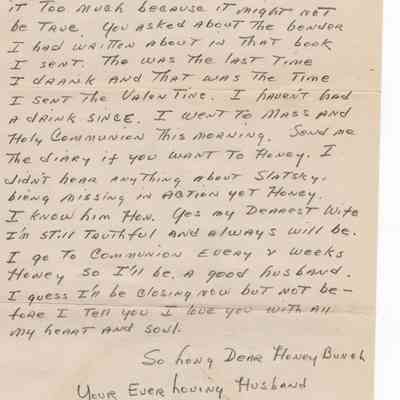 it Too much because it might not
be True. You asked about the bender
I had written about in that book
I sent. Tho was the last time
I drank and that was the time
I sent the Valentine. I haven't had
a drink since. I went to Mass and
Holy Communion this morning. Send me
the diary if you want to Honey. I
didn't hear anything about Slatsky,
bieng missing in action yet Honey.
I know him Hon. Yes my Dearest Wife
I'm still truthful and always will be.
I go to Communion every 2 weeks
Honey so I'll be a good husband.
I guess I'll be closing now but not be-
fore I tell you I love you with all
my heart and soul.
So Long Dear Honey Bunch
Your Ever Loving Husband